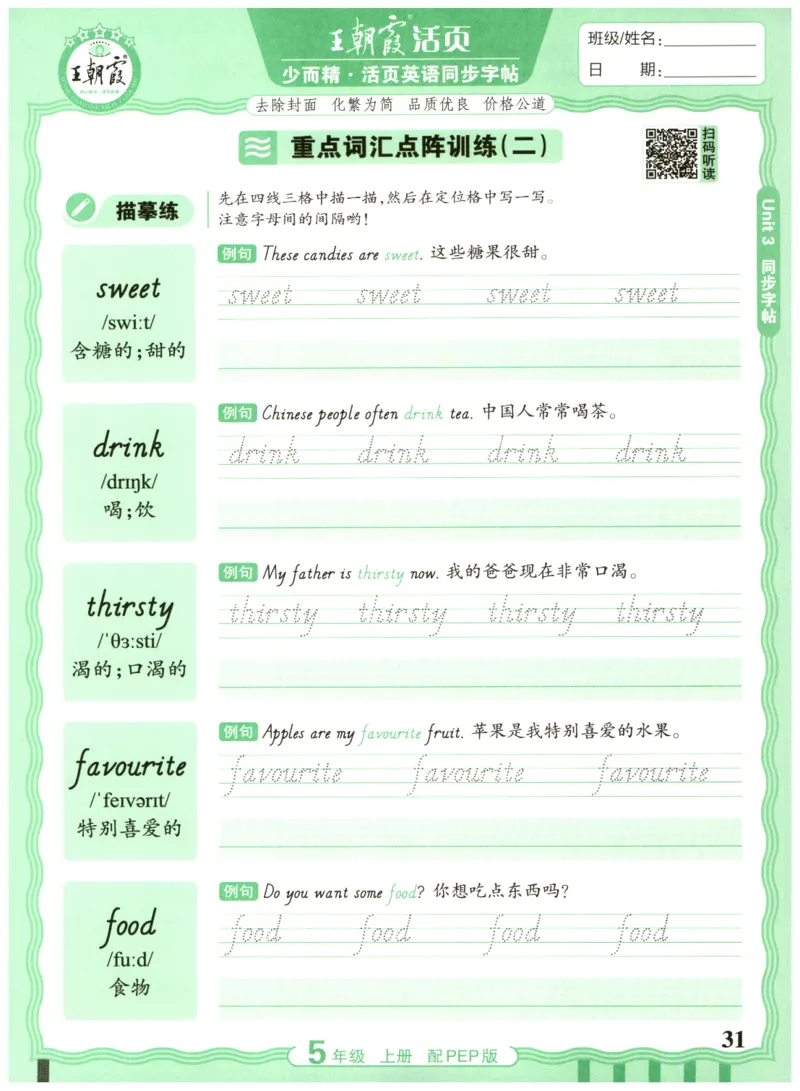 王朝霞
王朝霞活页
少而精·活页英语同步字帖
班级/姓名:
日 期:
去除封面 化繁为简 品质优良 价格公道
重点词汇点阵训练(二)
扫码听读
描摹练
先在四线三格中描一描,然后在定位格中写一写。
注意字母间的间隔哟!
Unit 3 同步字帖
sweet
/swiːt/
含糖的;甜的
例句 These candies are sweet. 这些糖果很甜。
sweet sweet sweet sweet
drink
/drɪŋk/
喝;饮
例句 Chinese people often drink tea. 中国人常常喝茶。
drink drink drink drink
thirsty
/ˈθɜːsti/
渴的;口渴的
例句 My father is thirsty now. 我的爸爸现在非常口渴。
thirsty thirsty thirsty thirsty
favourite
/ˈfeɪvərɪt/
特别喜爱的
例句 Apples are my favourite fruit. 苹果是我特别喜爱的水果。
favourite favourite favourite
food
/fuːd/
食物
例句 Do you want some food? 你想吃点东西吗?
food food food food
31
5年级 上册 配PEP版